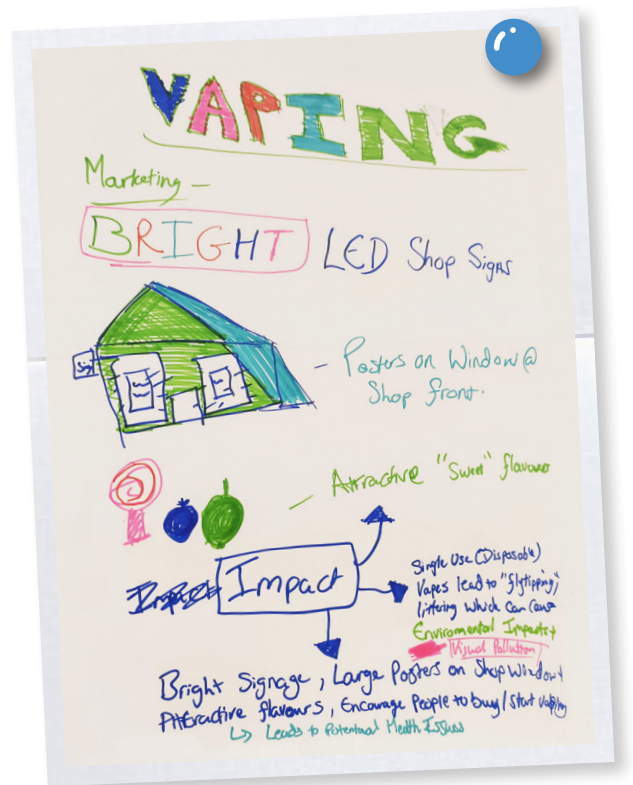 VAPING
Marketing –
BRIGHT LED Shop Signs
Posters on Window @
Shop front.
Attractive "Sweet" flavours
Impact
Single Use (Disposable)
Vapes lead to "flytipping",
littering which can cause
Enviromental Impacts +
Visual Pollution
Bright Signage, Large Posters on Shop Window +
Attractive flavours, Encourage People to buy/start vaping
Leads to Potentional Health Issues